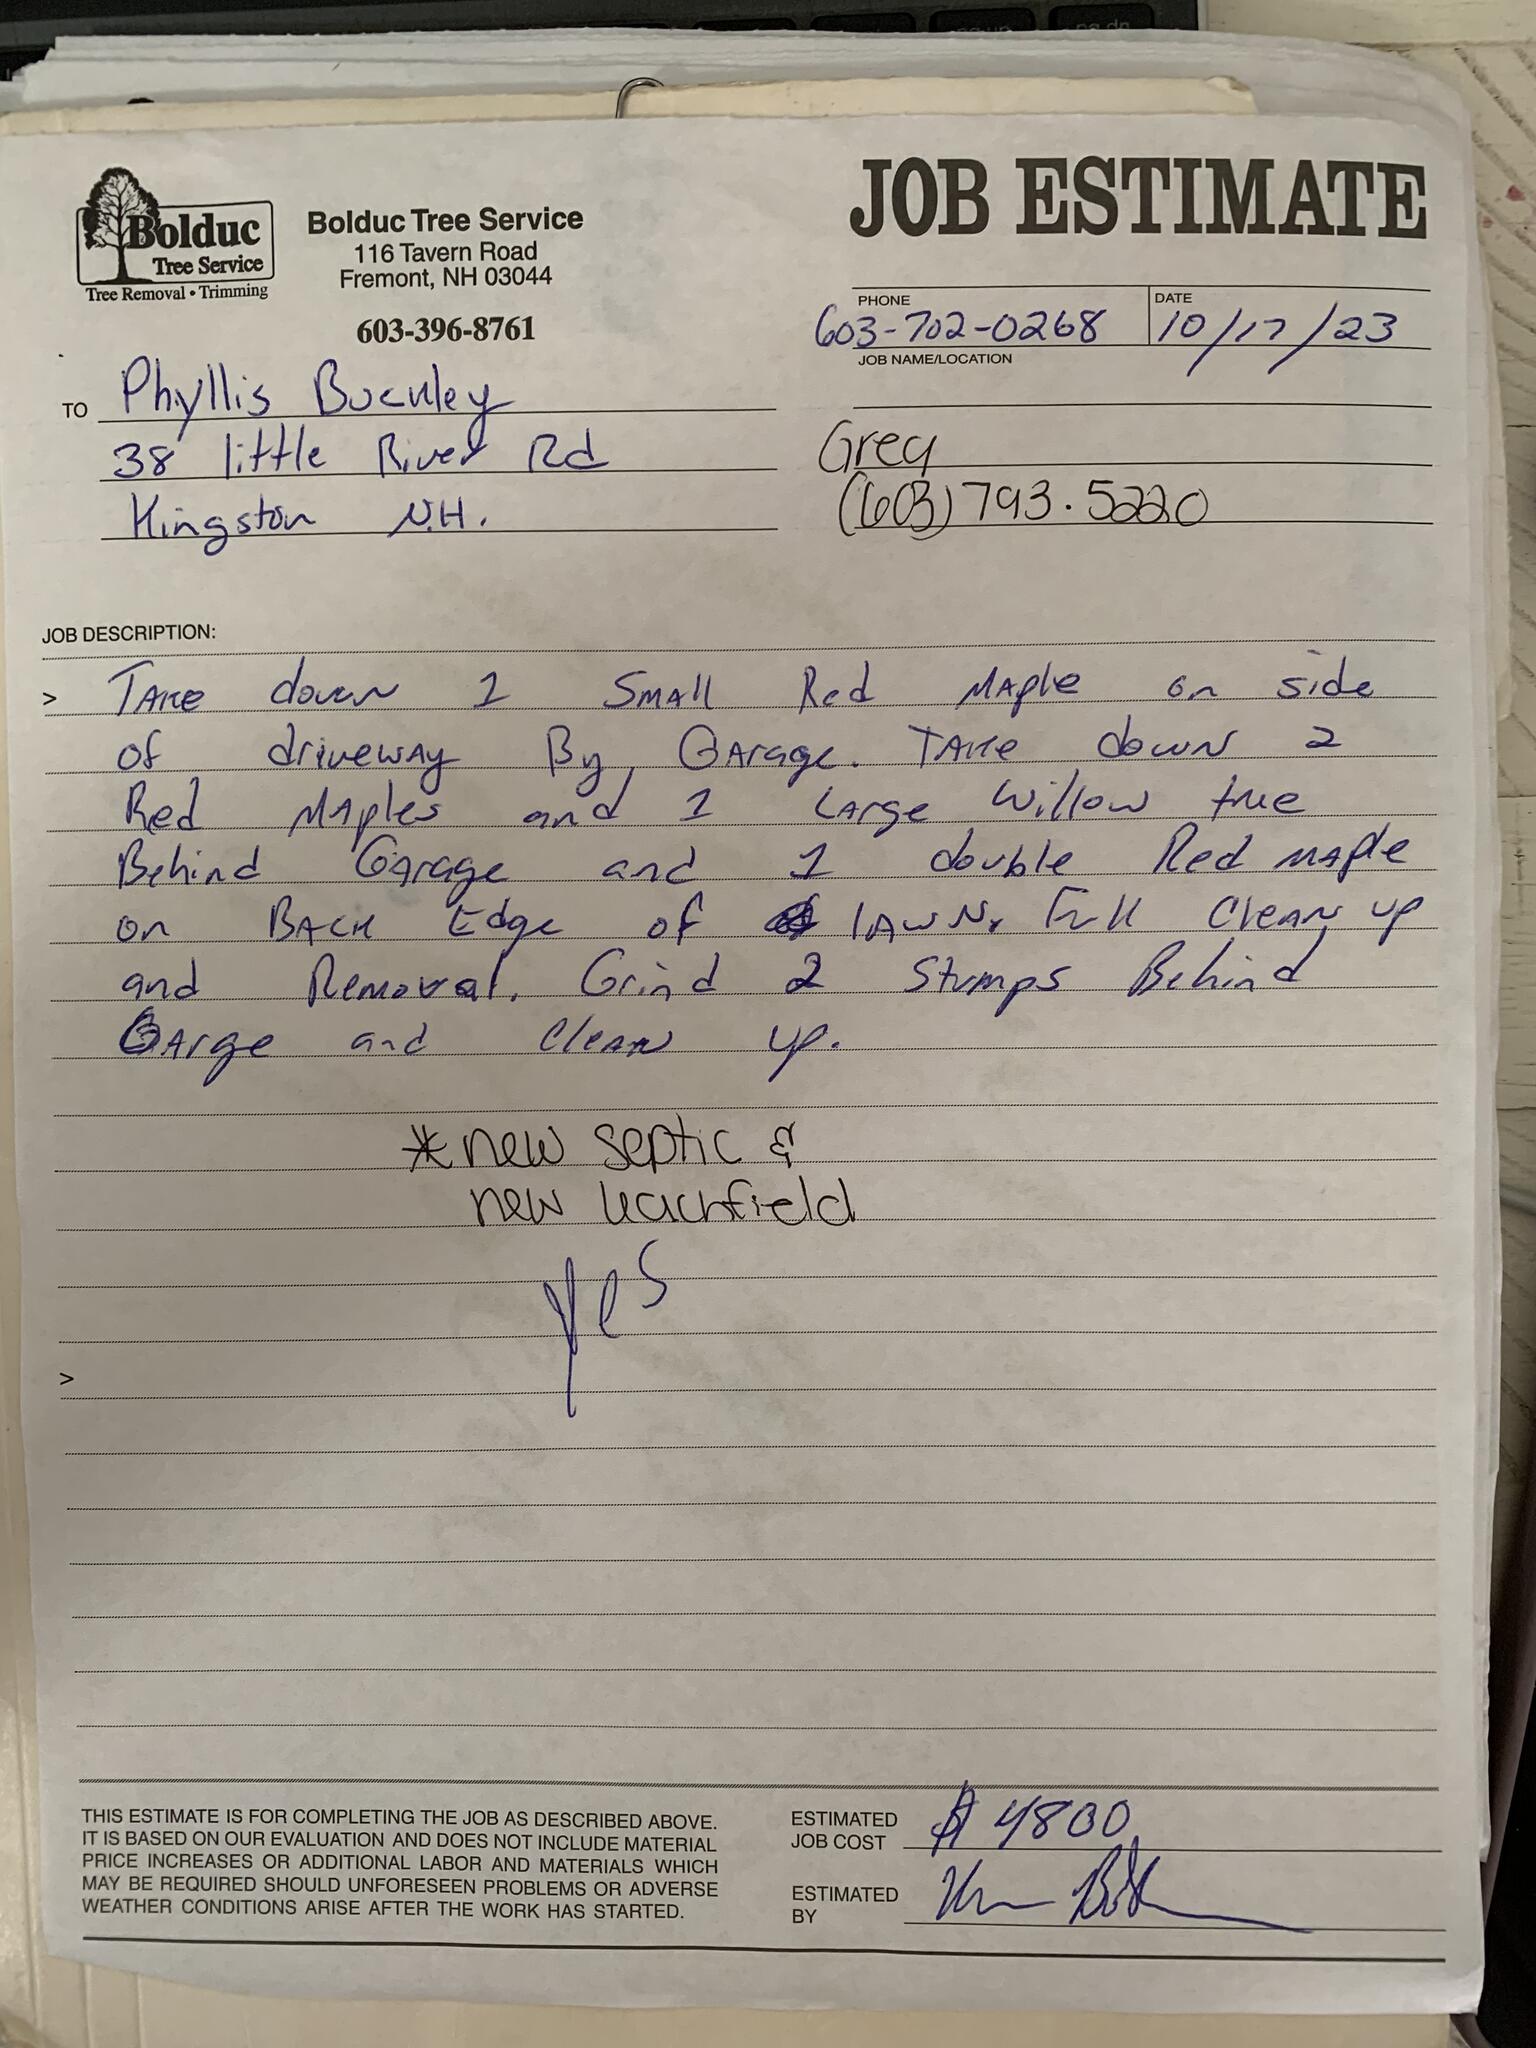 JOB ESTIMATE
Bolduc
Tree Service
Tree Removal • Trimming
Bolduc Tree Service
116 Tavern Road
Fremont, NH 03044
603-396-8761
PHONE
603-702-0268
DATE
10/17/23
JOB NAME/LOCATION
TO Phyllis Buckley
38 little River Rd
Kingston N.H.
Greg
(603) 793.5220
JOB DESCRIPTION:
> TAKE down 1 SMALL Red MAple on side
of driveway By GArage. TAKE down 2
Red MAples and 1 LArge Willow tree
Behind GArage and 1 double Red MAple
on BACK Edge of lAWN. Full CleAN up
and Removal. Grind 2 Stumps Behind
GArge and CleAN up.
* new septic &
new leachfield
yes
>
THIS ESTIMATE IS FOR COMPLETING THE JOB AS DESCRIBED ABOVE.
IT IS BASED ON OUR EVALUATION AND DOES NOT INCLUDE MATERIAL
PRICE INCREASES OR ADDITIONAL LABOR AND MATERIALS WHICH
MAY BE REQUIRED SHOULD UNFORESEEN PROBLEMS OR ADVERSE
WEATHER CONDITIONS ARISE AFTER THE WORK HAS STARTED.
ESTIMATED
JOB COST $4800
ESTIMATED
BY